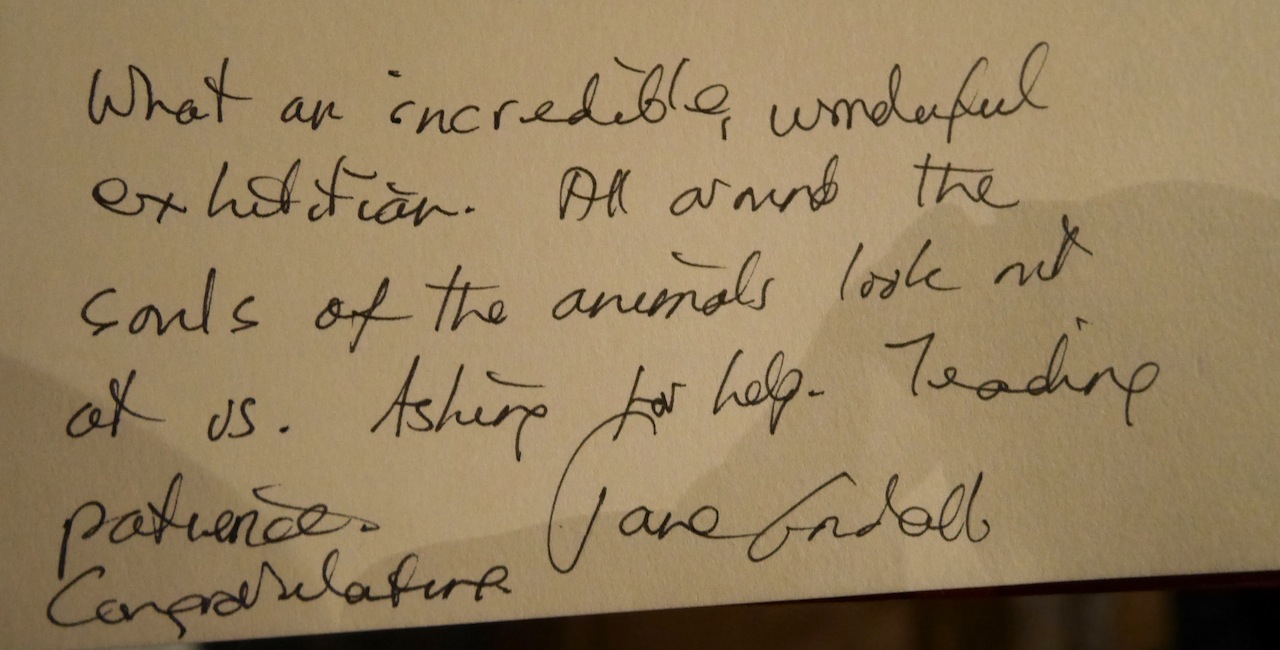 What an incredible, wonderful
exhibition. All around the
souls of the animals look out
at us. Asking for help. Teading
patience. Jane Goodall
Congratulations